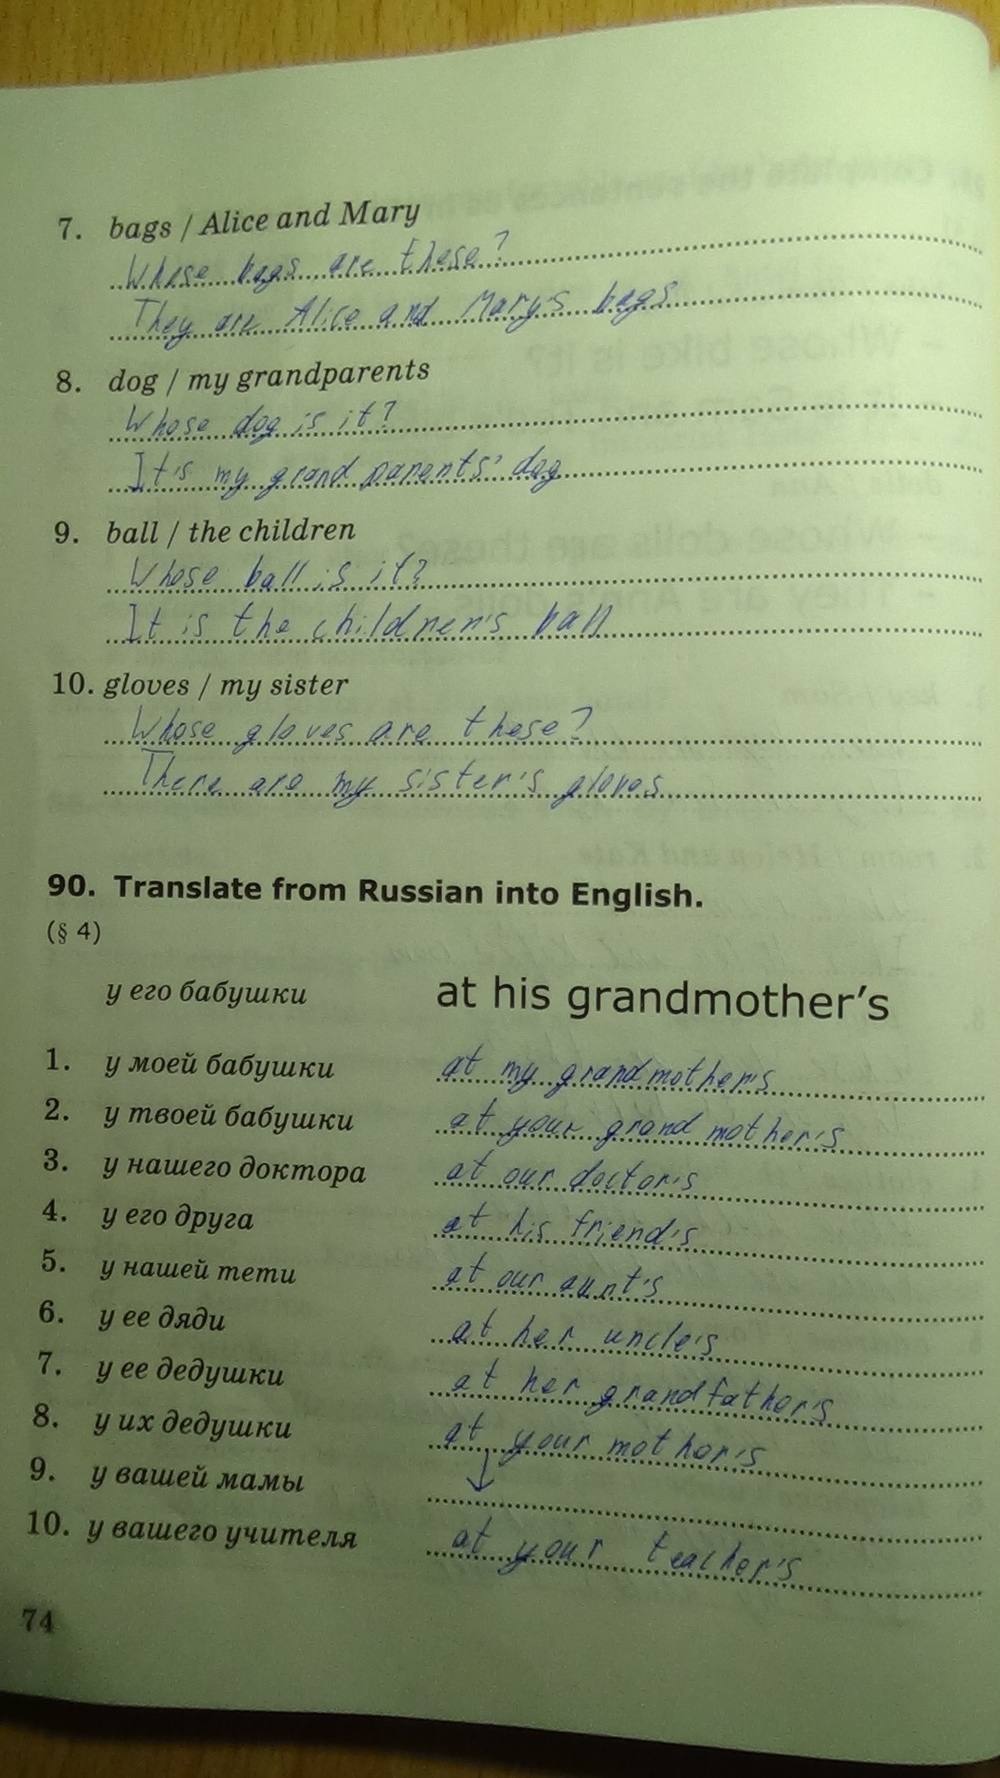 7. bags / Alice and Mary
Whose bags are these?
They are Alice and Mary's bags
8. dog / my grandparents
Whose dog is it?
It's my grandparents' dog
9. ball / the children
Whose ball is it?
It is the children's ball
10. gloves / my sister
Whose gloves are these?
There are my sister's gloves
90. Translate from Russian into English.
(§ 4)
у его бабушки at his grandmother's
1. у моей бабушки at my grandmother's
2. у твоей бабушки at your grandmother's
3. у нашего доктора at our doctor's
4. у его друга at his friend's
5. у нашей тети at our aunt's
6. у ее дяди at her uncle's
7. у ее дедушки at her grandfather's
8. у их дедушки at your mother's
9. у вашей мамы
10. у вашего учителя at your teacher's
74